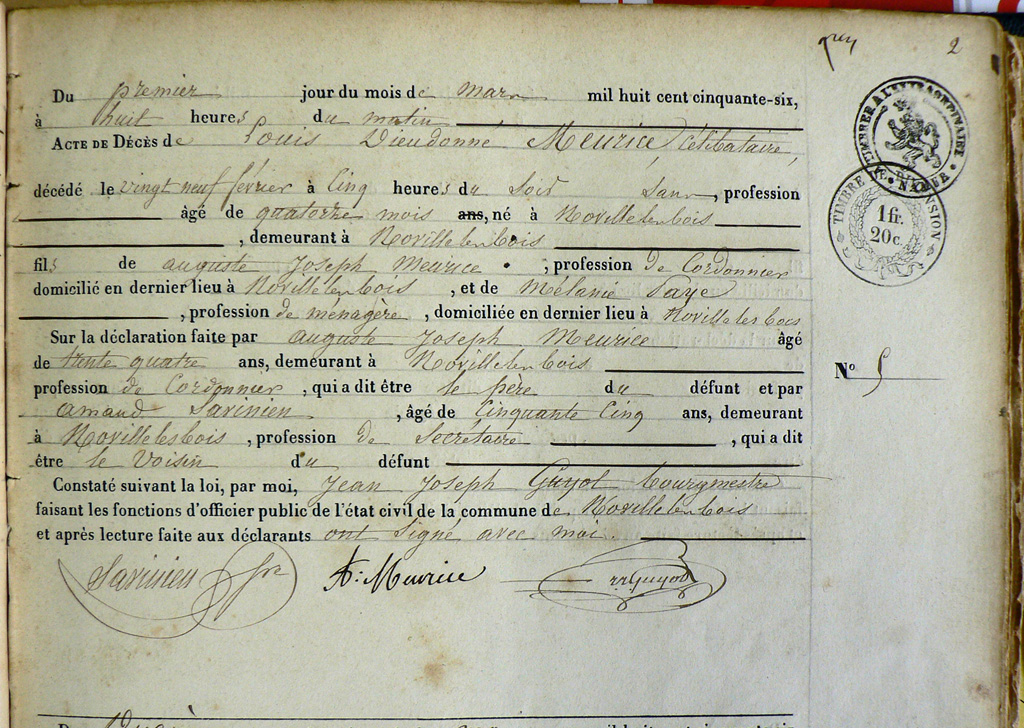 2
Du premier jour du mois de mars mil huit cent cinquante-six,
à huit heures du matin
ACTE DE DÉCÈS de Louis Dieudonné Meurice Célibataire,
décédé le vingt neuf février à Cinq heures du Soir Sans, profession
âgé de quatorze mois ans, né à Novillelesbois
, demeurant à Novillelesbois
fils de auguste Joseph Meurice , profession de Cordonnier
domicilié en dernier lieu à Novillelesbois , et de Mélanie Saye
, profession de ménagère , domiciliée en dernier lieu à Novillelesbois
Sur la déclaration faite par auguste Joseph Meurice âgé
de trente quatre ans, demeurant à Novillelesbois
profession de Cordonnier , qui a dit être le père du défunt et par
amand Savinien , âgé de Cinquante Cinq ans, demeurant
à Novillelesbois , profession de Secrétaire , qui a dit
être le Voisin du défunt
Constaté suivant la loi, par moi, Jean Joseph Guyot bourgmestre
faisant les fonctions d'officier public de l'état civil de la commune de Novillelesbois
et après lecture faite aux déclarants ont Signé avec moi.
Savinien A: Meurice Guyot
TIMBRE A L'EXTRAORDINAIRE
NAMUR
TIMBRE DE DIMENSION
1 fr.
20 c.
No 5
mil huit cent cinquante-six,